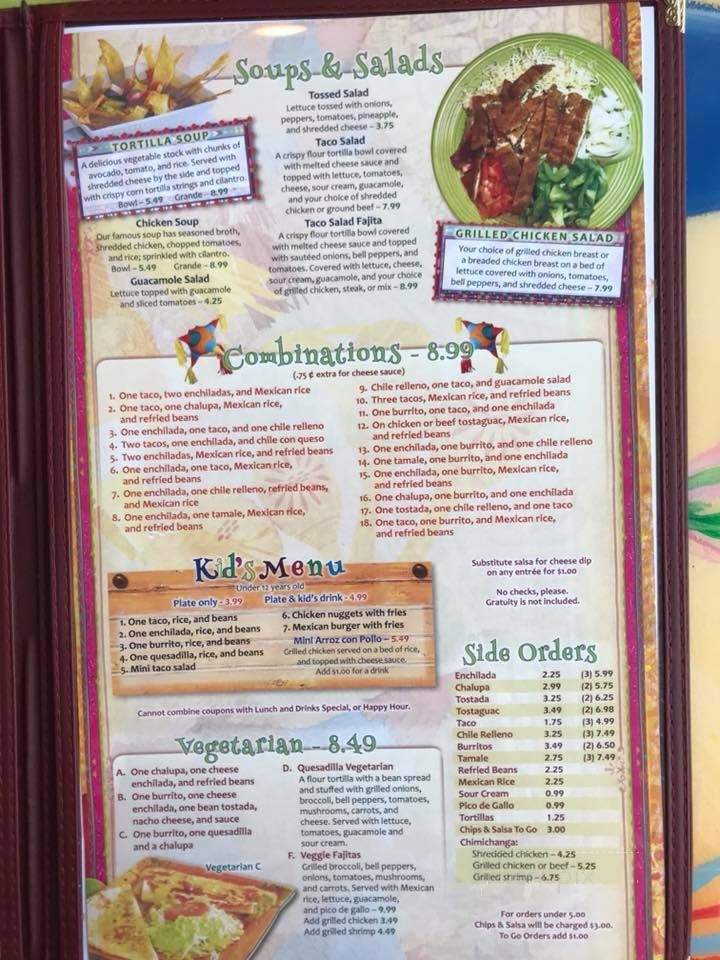 Soups & Salads
TORTILLA SOUP
A delicious vegetable stock with chunks of
avocado, tomato, and rice. Served with
shredded cheese by the side and topped
with crispy corn tortilla strings and cilantro.
Bowl – 5.49 Grande – 8.99
Chicken Soup
Our famous soup has seasoned broth,
shredded chicken, chopped tomatoes,
and rice; sprinkled with cilantro.
Bowl – 5.49 Grande – 8.99
Guacamole Salad
Lettuce topped with guacamole
and sliced tomatoes – 4.25
Tossed Salad
Lettuce tossed with onions,
peppers, tomatoes, pineapple,
and shredded cheese – 3.75
Taco Salad
A crispy flour tortilla bowl covered
with melted cheese sauce and
topped with lettuce, tomatoes,
cheese, sour cream, guacamole,
and your choice of shredded
chicken or ground beef – 7.99
Taco Salad Fajita
A crispy flour tortilla bowl covered
with melted cheese sauce and topped
with sautéed onions, bell peppers, and
tomatoes. Covered with lettuce, cheese,
sour cream, guacamole, and your choice
of grilled chicken, steak, or mix – 8.99
GRILLED CHICKEN SALAD
Your choice of grilled chicken breast or
a breaded chicken breast on a bed of
lettuce covered with onions, tomatoes,
bell peppers, and shredded cheese – 7.99
Combinations – 8.99
(.75 ¢ extra for cheese sauce)
1. One taco, two enchiladas, and Mexican rice
2. One taco, one chalupa, Mexican rice,
and refried beans
3. One enchilada, one taco, and one chile relleno
4. Two tacos, one enchilada, and chile con queso
5. Two enchiladas, Mexican rice, and refried beans
6. One enchilada, one taco, Mexican rice,
and refried beans
7. One enchilada, one chile relleno, refried beans,
and Mexican rice
8. One enchilada, one tamale, Mexican rice,
and refried beans
9. Chile relleno, one taco, and guacamole salad
10. Three tacos, Mexican rice, and refried beans
11. One burrito, one taco, and one enchilada
12. On chicken or beef tostaguac, Mexican rice,
and refried beans
13. One enchilada, one burrito, and one chile relleno
14. One tamale, one burrito, and one enchilada
15. One enchilada, one burrito, Mexican rice,
and refried beans
16. One chalupa, one burrito, and one enchilada
17. One tostada, one chile relleno, and one taco
18. One taco, one burrito, and Mexican rice,
and refried beans
Kid's Menu
Under 12 years old
Plate only - 3.99 Plate & kid's drink - 4.99
1. One taco, rice, and beans
2. One enchilada, rice, and beans
3. One burrito, rice, and beans
4. One quesadilla, rice, and beans
5. Mini taco salad
6. Chicken nuggets with fries
7. Mexican burger with fries
Mini Arroz con Pollo – 5.49
Grilled chicken served on a bed of rice,
and topped with cheese sauce.
Add $1.00 for a drink
Substitute salsa for cheese dip
on any entrée for $1.00
No checks, please.
Gratuity is not included.
Cannot combine coupons with Lunch and Drinks Special, or Happy Hour.
Vegetarian – 8.49
A. One chalupa, one cheese
enchilada, and refried beans
B. One burrito, one cheese
enchilada, one bean tostada,
nacho cheese, and sauce
C. One burrito, one quesadilla
and a chalupa
Vegetarian C
D. Quesadilla Vegetarian
A flour tortilla with a bean spread
and stuffed with grilled onions,
broccoli, bell peppers, tomatoes,
mushrooms, carrots, and
cheese. Served with lettuce,
tomatoes, guacamole and
sour cream.
F. Veggie Fajitas
Grilled broccoli, bell peppers,
onions, tomatoes, mushrooms,
and carrots. Served with Mexican
rice, lettuce, guacamole,
and pico de gallo – 9.99
Add grilled chicken 3.49
Add grilled shrimp 4.49
Side Orders
Enchilada 2.25 (3) 5.99
Chalupa 2.99 (2) 5.75
Tostada 3.25 (2) 6.25
Tostaguac 3.49 (2) 6.98
Taco 1.75 (3) 4.99
Chile Relleno 3.25 (3) 7.49
Burritos 3.49 (2) 6.50
Tamale 2.75 (3) 7.49
Refried Beans 2.25
Mexican Rice 2.25
Sour Cream 0.99
Pico de Gallo 0.99
Tortillas 1.25
Chips & Salsa To Go 3.00
Chimichanga:
Shredded chicken – 4.25
Grilled chicken or beef – 5.25
Grilled shrimp – 6.75
For orders under 5.00
Chips & Salsa will be charged $3.00.
To Go Orders add $1.00